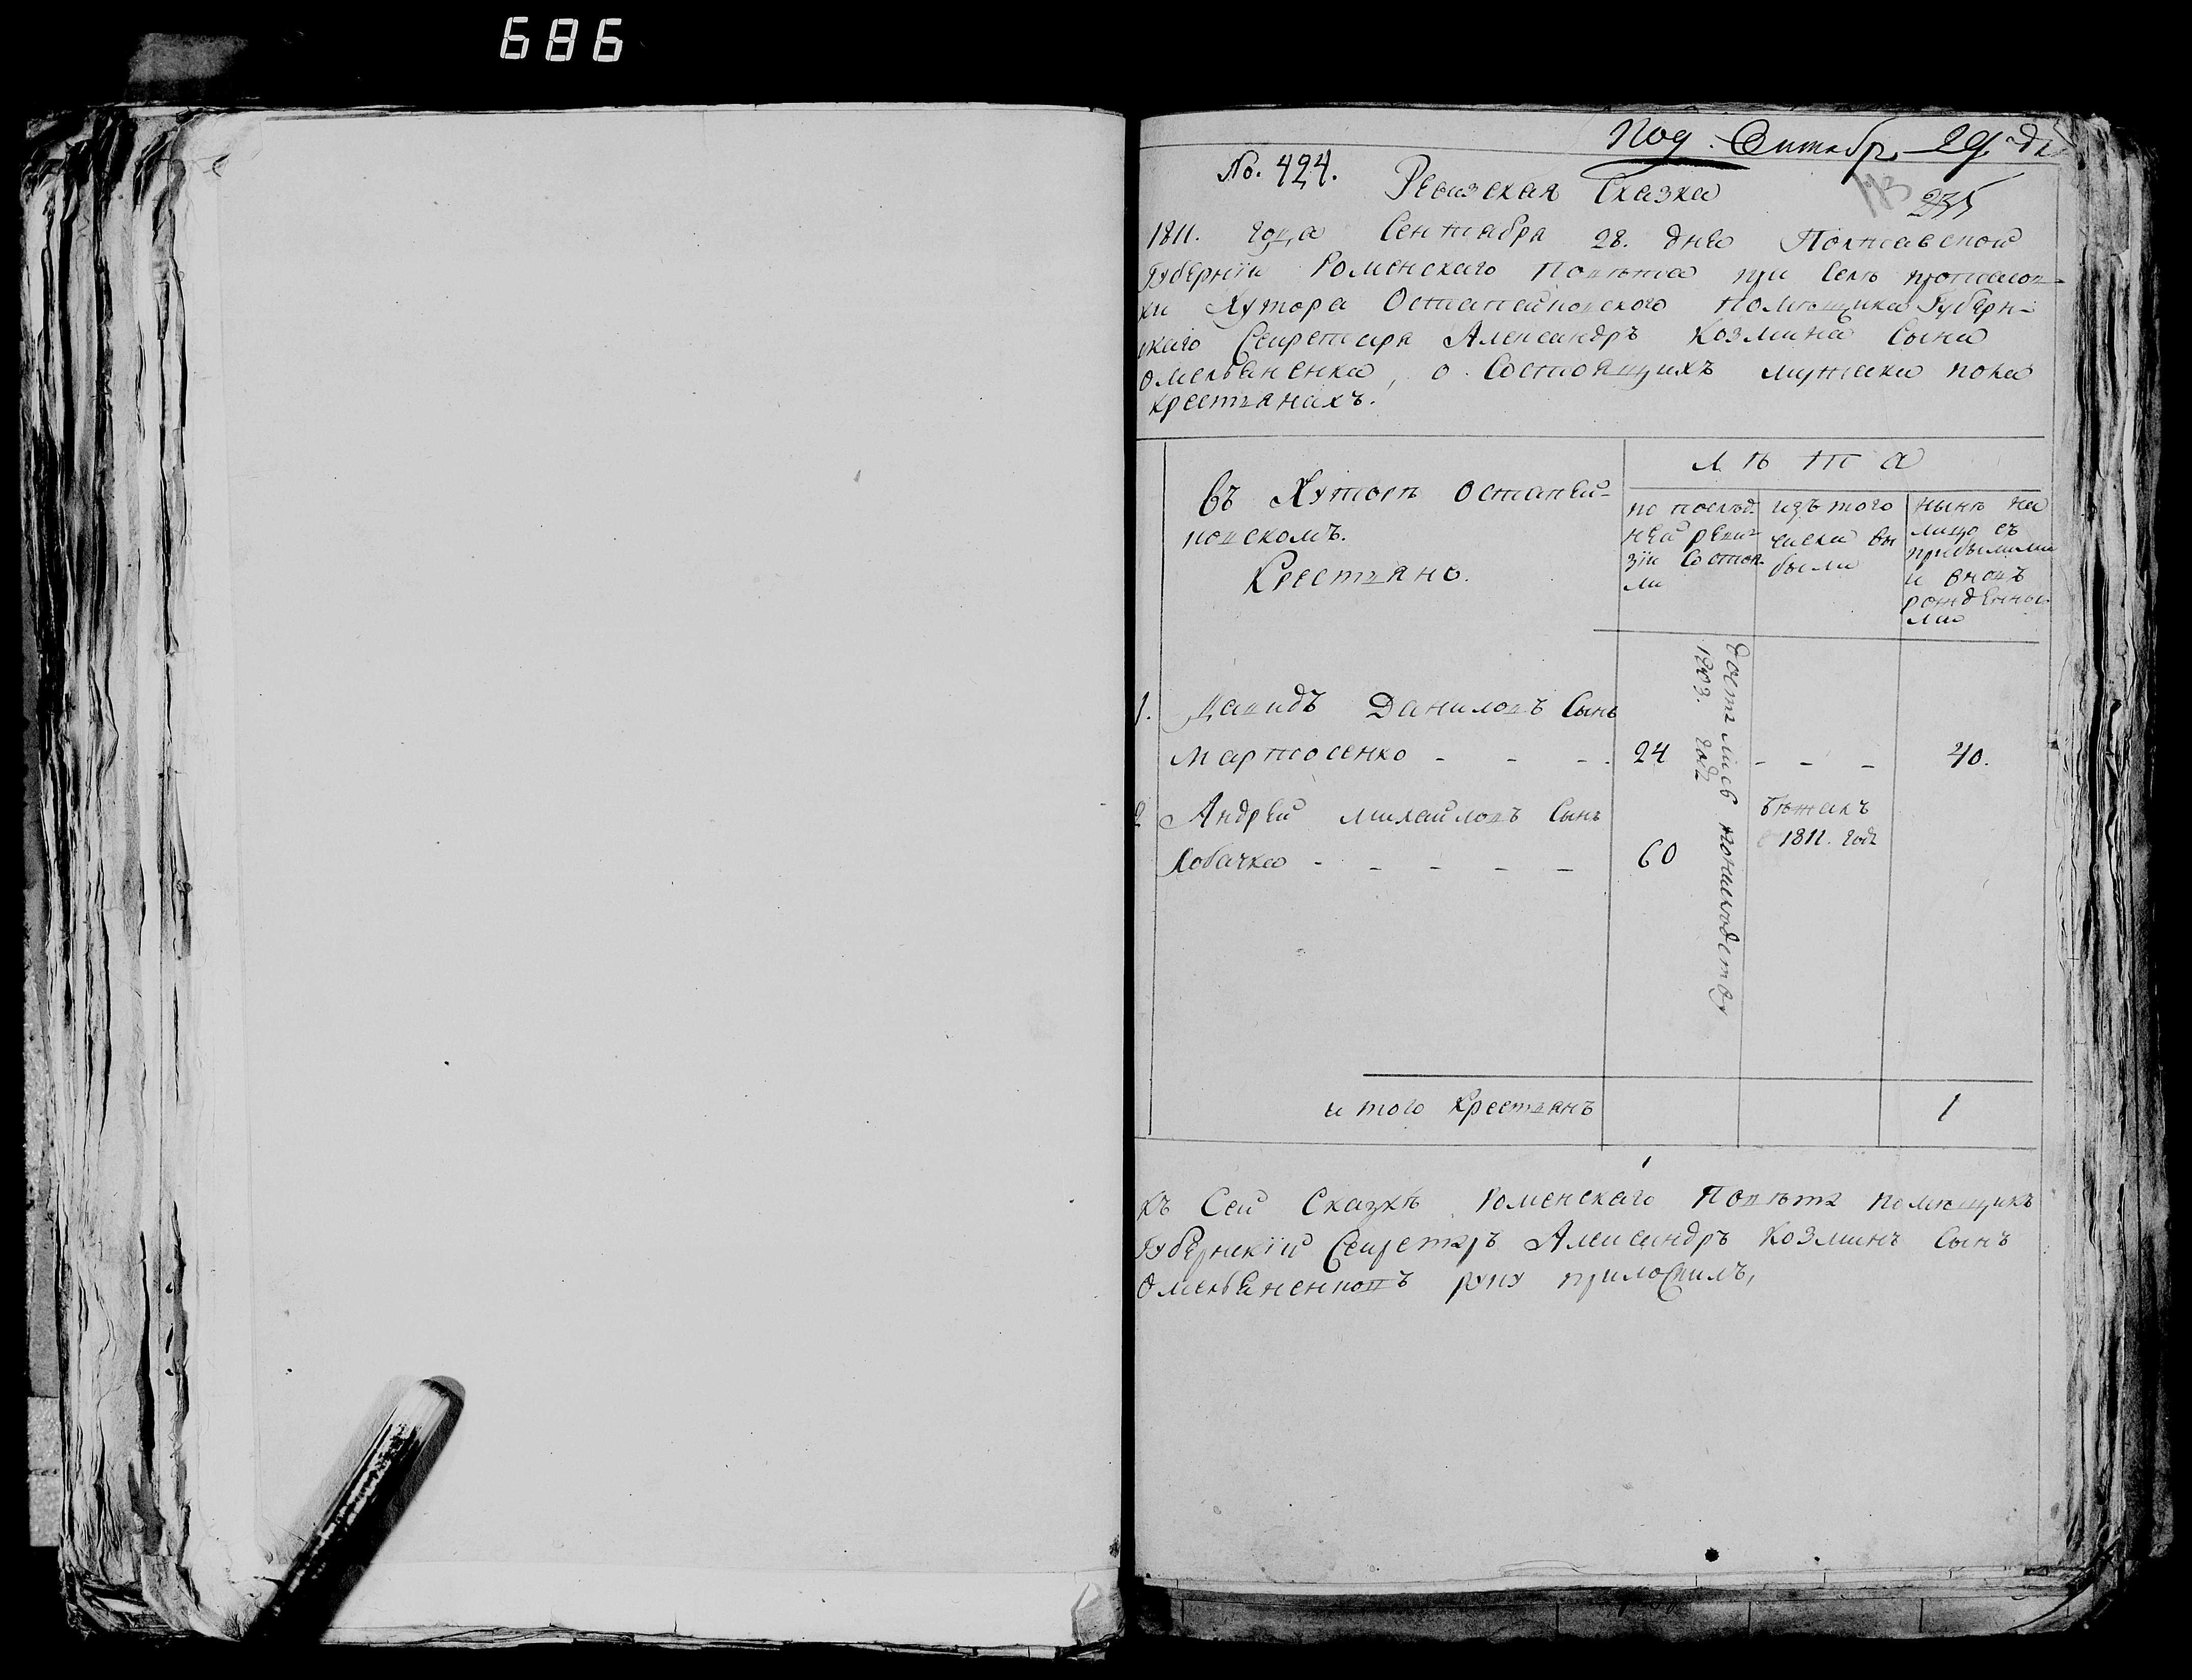 686
Под. Октябр 29 д
No. 424.
193
235
Ревизская Сказка
1811. года Сентября 28. дня Полтавской
Губернїи Роменскаго Повѣта при Селѣ
ки Хутора Остапейповского помѣщика Губерн-
скаго Секретаря Александръ Козмина Сына
Омельяненка, о Состоящихъ мужска пола
крестянахъ.
Въ Хуторѣ Остапей-
повскомъ.
Крестяно.
лѣта
по послѣд-
ней реви-
зїи Состоя-
ли
изъ того
числа вы
были
нынѣ на
лицо съ
прибылими
и вновъ
рожденны-
ми
1. Давидъ Даниловъ Сынъ
Мартосенко - - - 24 - - - 40.
достались по наслѣдству
1803. годѣ
2 Андрей Михайловъ Сынъ
Лобачка - - - - - 60
бѣжалъ
в 1811. годѣ
и того Крестянъ 1
Къ Сей Сказкѣ Роменскаго Повѣта помѣщикъ
Губернскїй Секретарь Александръ Козминъ Сынъ
Омельяненковъ руку приложилъ,